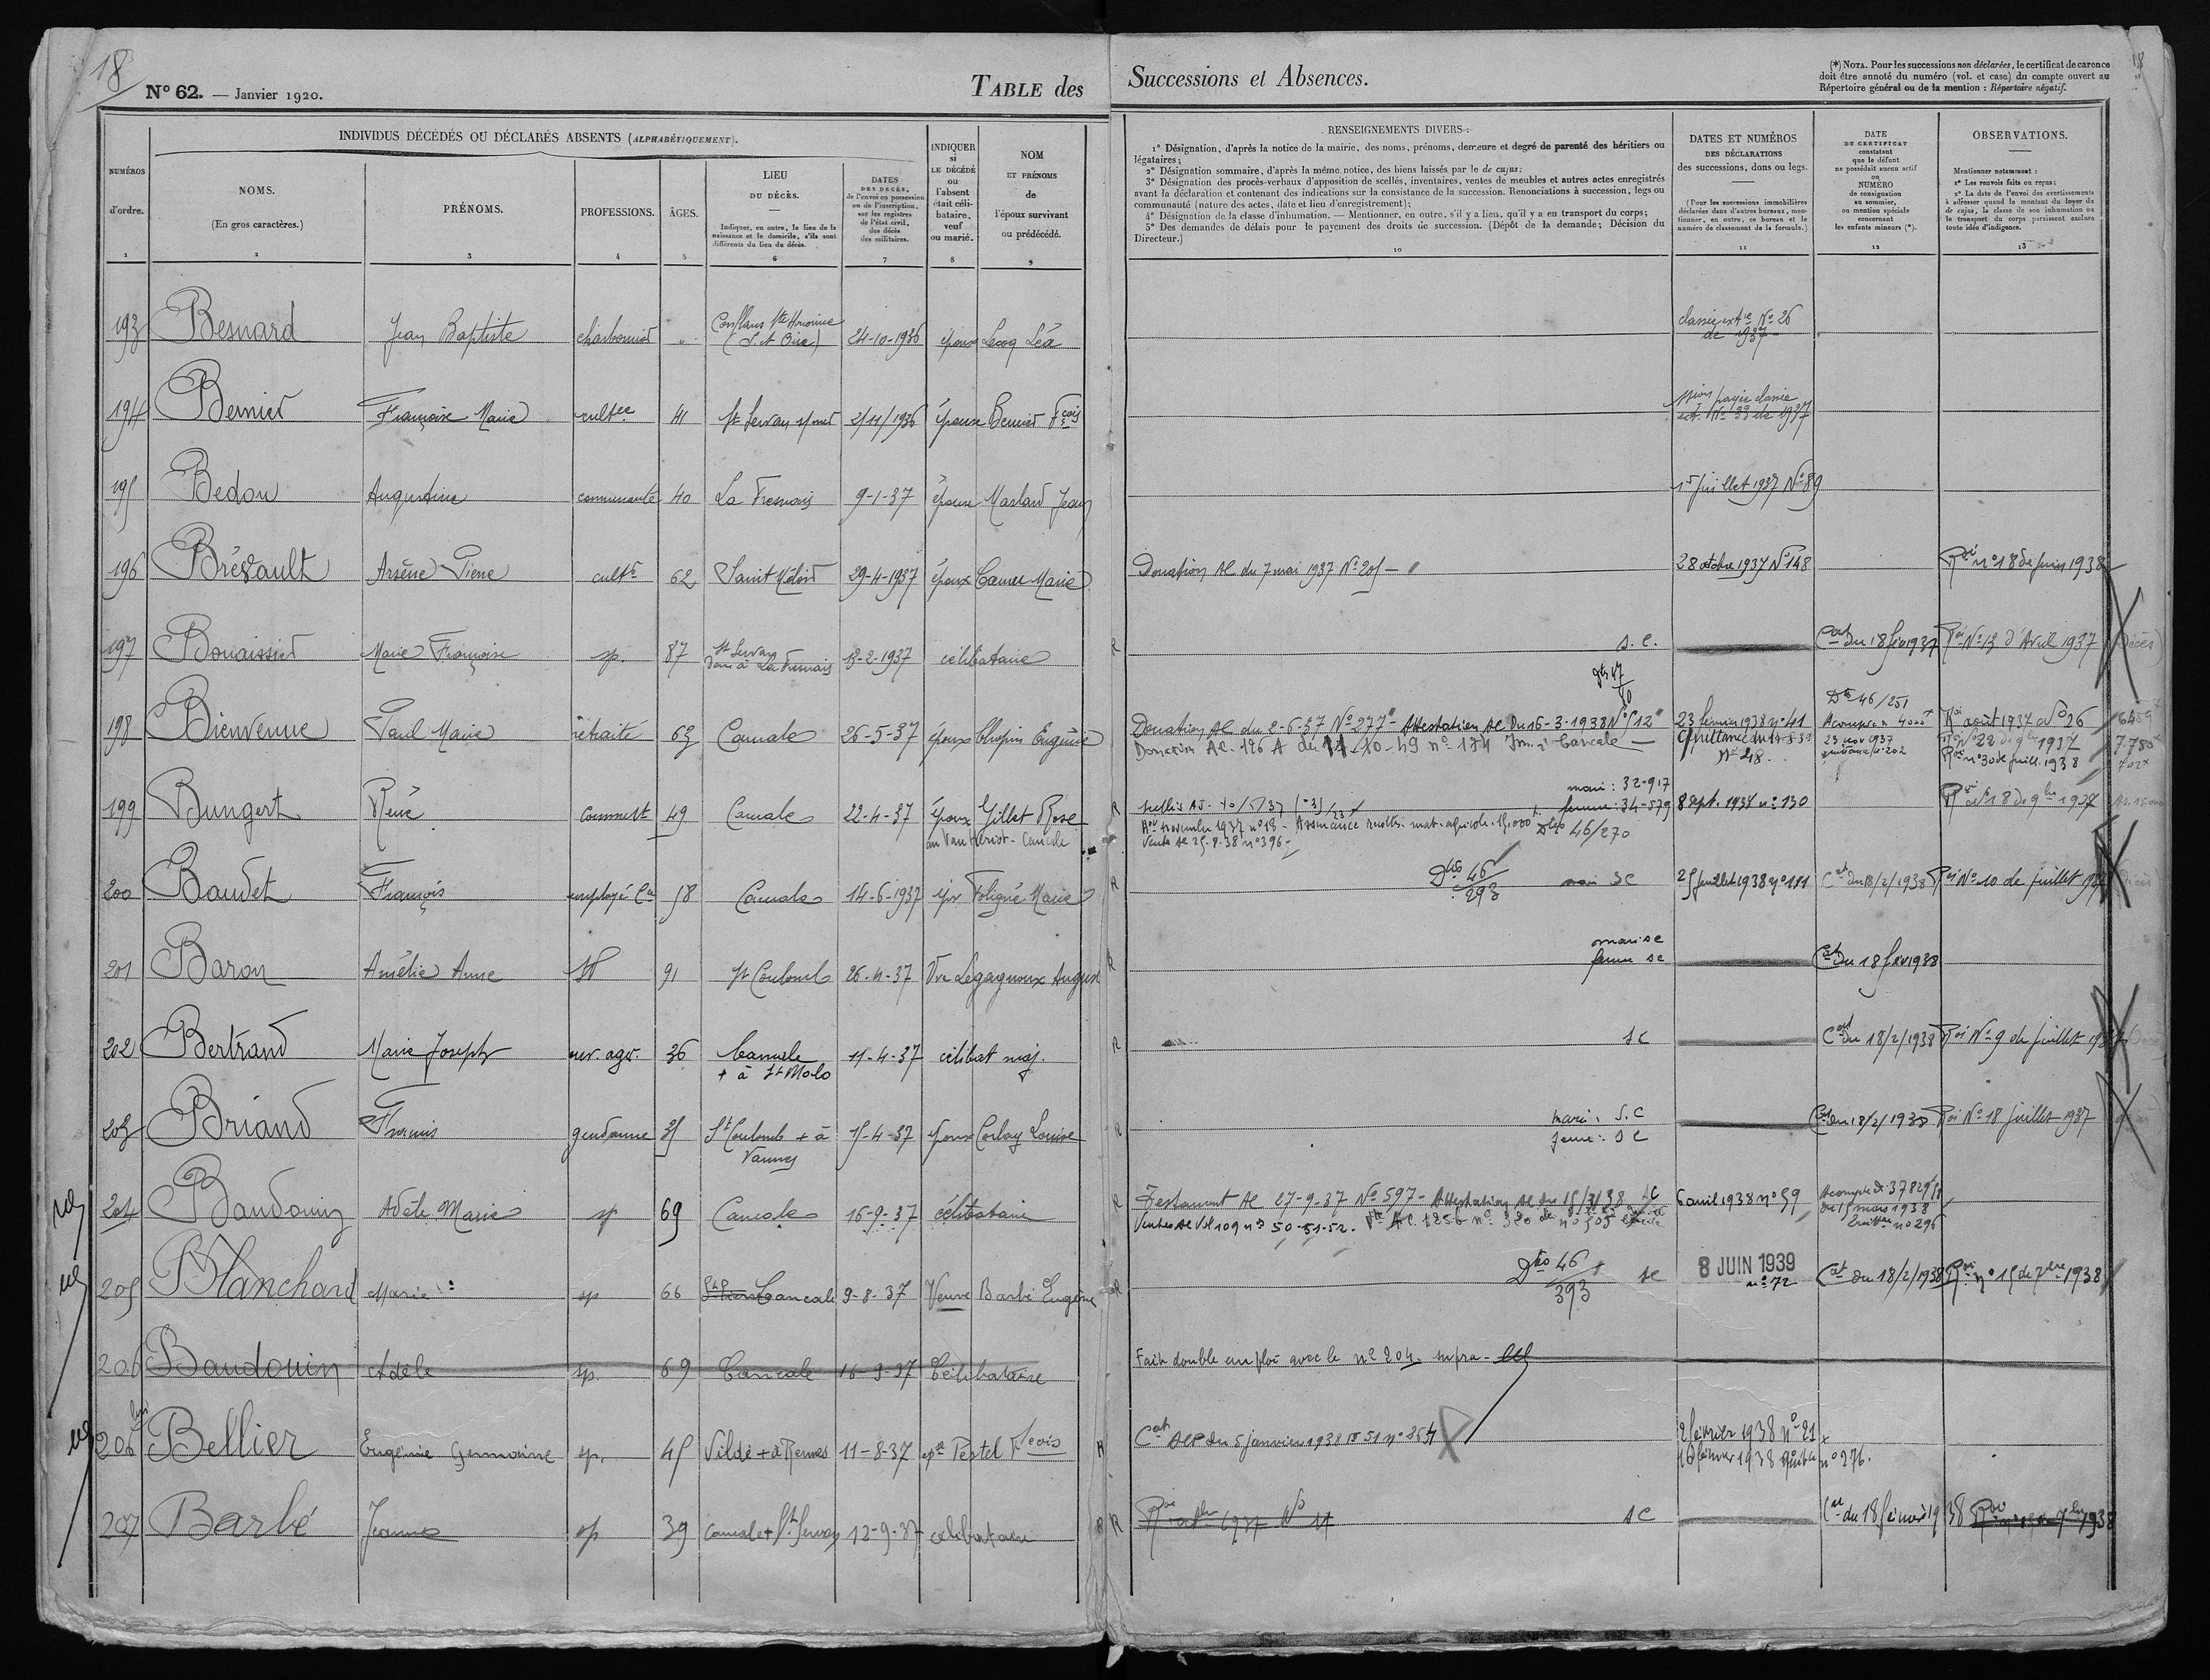 18
N° 62. — Janvier 1920.
TABLE des Successions et Absences.
(*) NOTA. Pour les successions non déclarées, le certificat de carence
doit être annoté du numéro (vol. et case) du compte ouvert au
Répertoire général ou de la mention : Répertoire négatif.
18
INDIVIDUS DÉCÉDÉS OU DÉCLARÉS ABSENTS (ALPHABÉTIQUEMENT).
NUMÉROS
d'ordre.
1
NOMS.
(En gros caractères.)
2
PRÉNOMS.
3
PROFESSIONS.
4
ÂGES.
5
LIEU
DU DÉCÈS.
Indiquer, en outre, le lieu de la
naissance et le domicile, s'ils sont
différents du lieu du décès.
6
DATES
DES DÉCÈS,
de l'envoi en possession
ou de l'inscription,
sur les registres
de l'état civil,
des décès
des militaires.
7
INDIQUER
si
LE DÉCÉDÉ
ou
l'absent
était céli-
bataire,
veuf
ou marié.
8
NOM
ET PRÉNOMS
de
l'époux survivant
ou prédécédé.
9
RENSEIGNEMENTS DIVERS :
1° Désignation, d'après la notice de la mairie, des noms, prénoms, demeure et degré de parenté des héritiers ou
légataires;
2° Désignation sommaire, d'après la même notice, des biens laissés par le de cujus;
3° Désignation des procès-verbaux d'apposition de scellés, inventaires, ventes de meubles et autres actes enregistrés
avant la déclaration et contenant des indications sur la consistance de la succession. Renonciations à succession, legs ou
communauté (nature des actes, date et lieu d'enregistrement);
4° Désignation de la classe d'inhumation. — Mentionner, en outre, s'il y a lieu, qu'il y a eu transport du corps;
5° Des demandes de délais pour le payement des droits de succession. (Dépôt de la demande; Décision du
Directeur.)
10
DATES ET NUMÉROS
DES DÉCLARATIONS
des successions, dons ou legs.
(Pour les successions immobilières
déclarées dans d'autres bureaux, men-
tionner, en outre, ce bureau et le
numéro de classement de la formule.)
11
DATE
DU CERTIFICAT
constatant
que le défunt
ne possédait aucun actif
ou
NUMÉRO
de consignation
au sommier,
ou mention spéciale
concernant
les enfants mineurs (*).
12
OBSERVATIONS.
Mentionner notamment :
1° Les renvois faits ou reçus;
2° La date de l'envoi des avertissements
à adresser quand le montant du loyer du
de cujus, la classe de son inhumation ou
le transport du corps paraissent exclure
toute idée d'indigence.
13
193 Besnard Jean Baptiste charbonnier " Conflans Ste Honorine
(S. et Oise) 24-10-1936 époux Lecoq Léa
N° 26
de 1937
194 Bernier Françoise Marie cultce 41 St Servan s/mer 2/11/1936 épouse Bernier Fçois
payée classée
N° 33 de 1937
195 Bedou Augustine commerçante 40 La Fresnais 9-1-37 épouse Masland Jean
15 juillet 1937 N° 89
196 Brévault Arsène Pierre cultr 62 Saint Méloir 29-4-1937 époux Camus Marie
Donation AC du 7 mai 1937 N° 205 - 28 octobre 1937 N° 148 Roi n° 18 de juin 1938
197 Bouaissier Marie Françoise sp. 87 St Servan
dom à La Fresnais 13-2-1937 célibataire
R s.c. Cat du 18 fév 1937 Roi N° 13 d'Avril 1937 (Décès)
198 Bienvenue Paul Marie retraité 63 Cancale 26-5-37 époux Chopin Eugénie
Donation AC du 2-6-37 N° 277 - Attestation AC du 16-3-1938 N° 512
Donation AC. 126 A du 14-10-49 n° 184 Cancale
23 février 1938 n° 41
Quittance du
N° 48.
Dto 46/251
Acompte 4000
23 nov 1937
quittance n° 202
Roi août 1937 N° 26
Roi N° 22 de 9bre 1937
Roi n° 30 de juill. 1938
7.780
702
199 Bungert René commerçt 49 Cancale 22-4-37 époux Gillet Rose
au Vauhériot - Cancale
R mari : 32-917
femme : 34-579
Roi novembre 1937 n° 18 - Assurance récoltes. mat. agricole. 15.000 Dto 46/270
Vente AC 25-8-38 n° 396
8 sept. 1937 n° 130 Roi N° 18 de 9bre 1937
200 Baudet François employé Cce 58 Cancale 14-6-1937 épx Foligné Marie
R Dto 46
293
mari SC 25 juillet 1938 n° 181 Cat du 18/2/1938 Roi N° 10 de juillet 1937
201 Baron Amélie Anne SP 91 St Coulomb 26-4-37 Vve Legagnoux August
R mari sc
femme sc
Cat du 18 fév 1938
202 Bertrand Marie Joseph ouv. agr. 36 Cancale
+ à St Malo 11-4-37 célibat maj.
R sc Cat du 18/2/1938 Roi N° 9 de juillet 1937
203 Briand Francis gendarme 35 St Coulomb + à
Vannes 15-4-37 époux Corlay Louise
R mari : S.C
femme : S C
Cat du 18/2/1938 Roi N° 18 juillet 1937
204 Baudouin Adèle Marie sp 69 Cancale 16-9-37 célibataire
R Testament AC 27-9-37 N° 597 - Attestation AC du SC
Ventes AC Vol 109 n° 50-51-52.
6 avril 1938 n° 59
Acompte de 37829
du 15 mars 1938
n° 296
205 Blanchard Marie sp 66 Cancale 9-8-37 Veuve Barbé Eugène
R Dto 46
393
sc 8 JUIN 1939
n° 72
Cat du 18/2/1938 Roi n° 15 de 7bre 1938
206 Baudouin Adèle sp. 69 Cancale 16-9-37 Célibataire
Fait double emploi avec le n° 204. supra -
206 bis Bellier Eugénie Germaine sp. 45 Vildé + à Rennes 11-8-37 épse Pestel Fçois
R Cat ACP du 5 janvier 1938 n° 2654
2 février 1938 n° 21
16 février 1938 n° 276.
207 Barbé Jeanne sp 39 Cancale + St Servan 12-9-37 célibataire
R Roi 1937 N° 11
sc Cat du 18 février 1938 Roi 7bre 1938